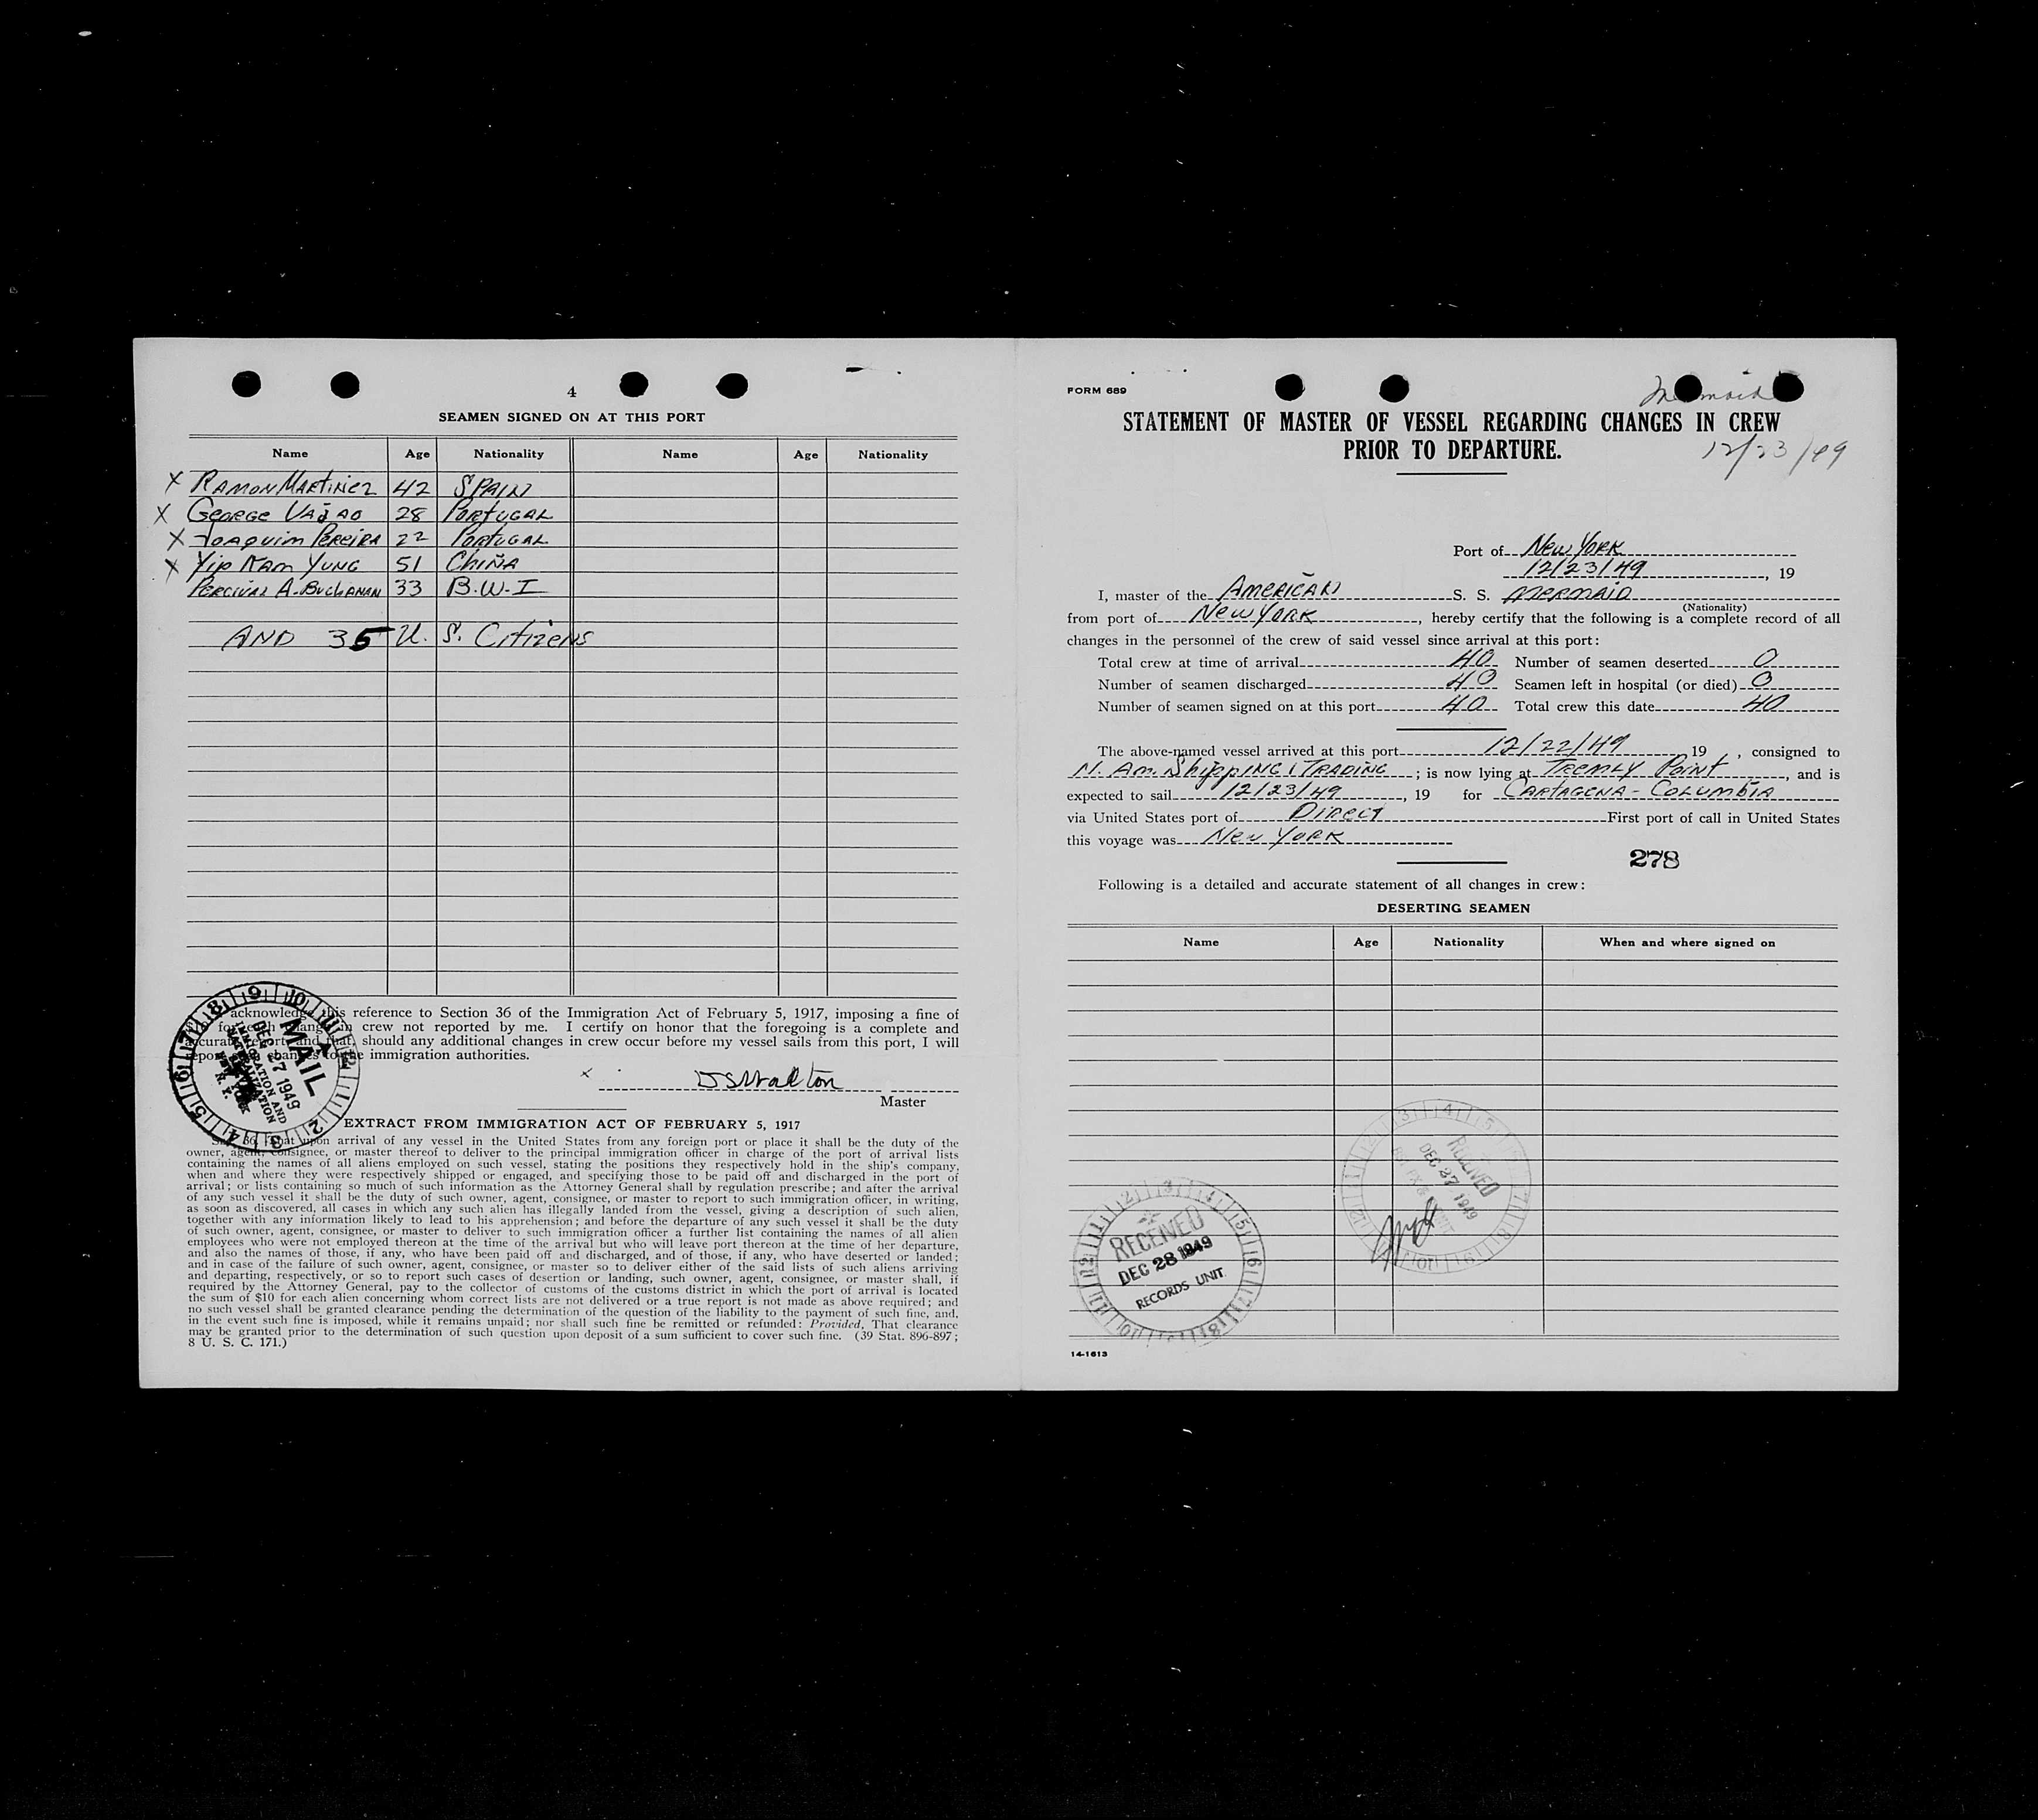 4
SEAMEN SIGNED ON AT THIS PORT
Name Age Nationality Name Age Nationality
X RAMON MARTINEZ 42 SPAIN
X GEORGE VAJAO 28 PORTUGAL
X JOAQUIM PEREIRA 22 PORTUGAL
X YIP KAM YUNG 51 CHINA
PERCIVAL A. BUCHANAN 33 B.W.I
AND 35 U. S. CITIZENS
acknowledge this reference to Section 36 of the Immigration Act of February 5, 1917, imposing a fine of
for each change in crew not reported by me. I certify on honor that the foregoing is a complete and
accurate report and that, should any additional changes in crew occur before my vessel sails from this port, I will
report such changes to the immigration authorities.
x DSWalton
Master
MAIL
DEC 27 1949
IMMIGRATION AND
NATURALIZATION
NEW YORK
N. Y.
EXTRACT FROM IMMIGRATION ACT OF FEBRUARY 5, 1917
Sec. 36. That upon arrival of any vessel in the United States from any foreign port or place it shall be the duty of the
owner, agent, consignee, or master thereof to deliver to the principal immigration officer in charge of the port of arrival lists
containing the names of all aliens employed on such vessel, stating the positions they respectively hold in the ship's company,
when and where they were respectively shipped or engaged, and specifying those to be paid off and discharged in the port of
arrival; or lists containing so much of such information as the Attorney General shall by regulation prescribe; and after the arrival
of any such vessel it shall be the duty of such owner, agent, consignee, or master to report to such immigration officer, in writing,
as soon as discovered, all cases in which any such alien has illegally landed from the vessel, giving a description of such alien,
together with any information likely to lead to his apprehension; and before the departure of any such vessel it shall be the duty
of such owner, agent, consignee, or master to deliver to such immigration officer a further list containing the names of all alien
employees who were not employed thereon at the time of the arrival but who will leave port thereon at the time of her departure,
and also the names of those, if any, who have been paid off and discharged, and of those, if any, who have deserted or landed;
and in case of the failure of such owner, agent, consignee, or master so to deliver either of the said lists of such aliens arriving
and departing, respectively, or so to report such cases of desertion or landing, such owner, agent, consignee, or master shall, if
required by the Attorney General, pay to the collector of customs of the customs district in which the port of arrival is located
the sum of $10 for each alien concerning whom correct lists are not delivered or a true report is not made as above required; and
no such vessel shall be granted clearance pending the determination of the question of the liability to the payment of such fine, and,
in the event such fine is imposed, while it remains unpaid; nor shall such fine be remitted or refunded: Provided, That clearance
may be granted prior to the determination of such question upon deposit of a sum sufficient to cover such fine. (39 Stat. 896-897;
8 U. S. C. 171.)
FORM 689
Mermaid
STATEMENT OF MASTER OF VESSEL REGARDING CHANGES IN CREW
PRIOR TO DEPARTURE.
12/23/49
Port of NEW YORK
12/23/49, 19
I, master of the AMERICAN S. S. MERMAID
(Nationality)
from port of NEW YORK, hereby certify that the following is a complete record of all
changes in the personnel of the crew of said vessel since arrival at this port:
Total crew at time of arrival 40 Number of seamen deserted 0
Number of seamen discharged 40 Seamen left in hospital (or died) 0
Number of seamen signed on at this port 40 Total crew this date 40
The above-named vessel arrived at this port 12/22/49 19 , consigned to
N. Am. SHIPPING & TRADING; is now lying at TREMLY POINT, and is
expected to sail 12/23/49, 19 for CARTAGENA - COLUMBIA
via United States port of DIRECT First port of call in United States
this voyage was NEW YORK
278
Following is a detailed and accurate statement of all changes in crew:
DESERTING SEAMEN
Name Age Nationality When and where signed on
RECEIVED
DEC 27 1949
RECEIVED
DEC 28 1949
RECORDS UNIT
14-1613